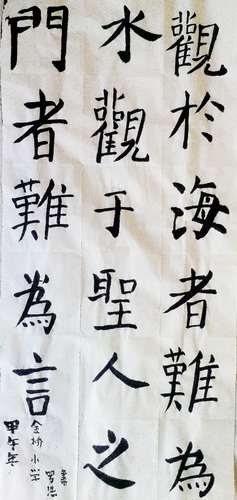 觀於海者難為
水觀于聖人之
門者難為言
甲午年
金桥小学